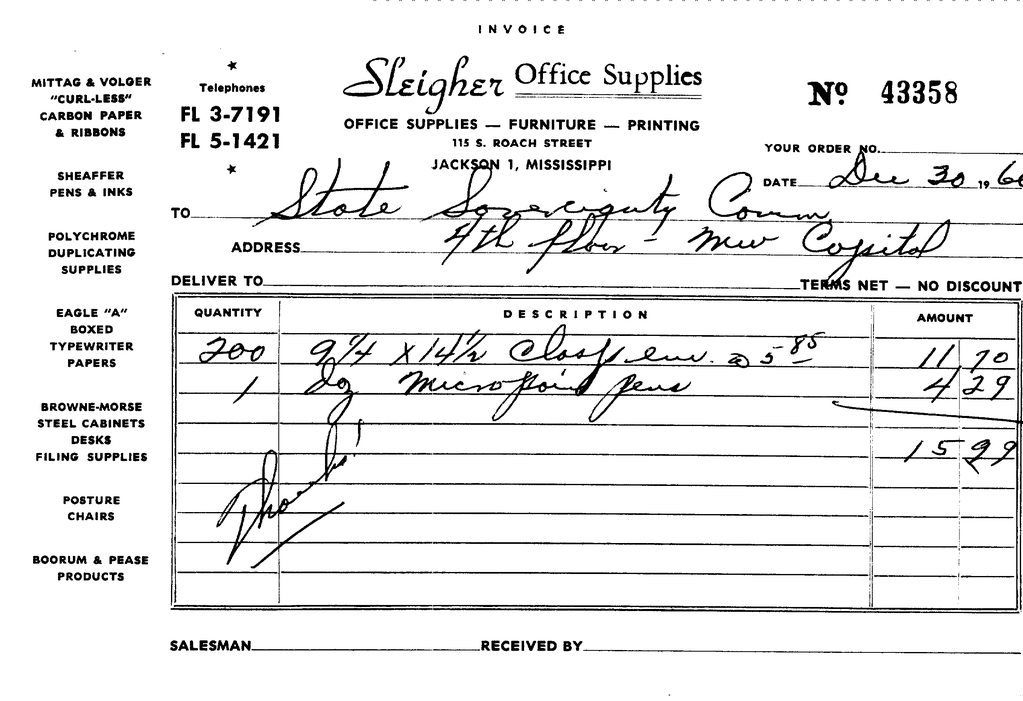 INVOICE
MITTAG & VOLGER
"CURL-LESS"
CARBON PAPER
& RIBBONS
SHEAFFER
PENS & INKS
POLYCHROME
DUPLICATING
SUPPLIES
EAGLE "A"
BOXED
TYPEWRITER
PAPERS
BROWNE-MORSE
STEEL CABINETS
DESKS
FILING SUPPLIES
POSTURE
CHAIRS
BOORUM & PEASE
PRODUCTS
Telephones
FL 3-7191
FL 5-1421
Sleigher Office Supplies
OFFICE SUPPLIES — FURNITURE — PRINTING
115 S. ROACH STREET
JACKSON 1, MISSISSIPPI
No 43358
YOUR ORDER NO.
DATE Dec 30 1960
TO State Sovereignty Comm
ADDRESS 4th floor - New Capitol
DELIVER TO TERMS NET — NO DISCOUNT
QUANTITY DESCRIPTION AMOUNT
200 9 1/4 x 14 1/2 Clasp env. @ 5 85 11 70
1 dz Micropoint pens 4 29
15 99
Thanks!
SALESMAN RECEIVED BY